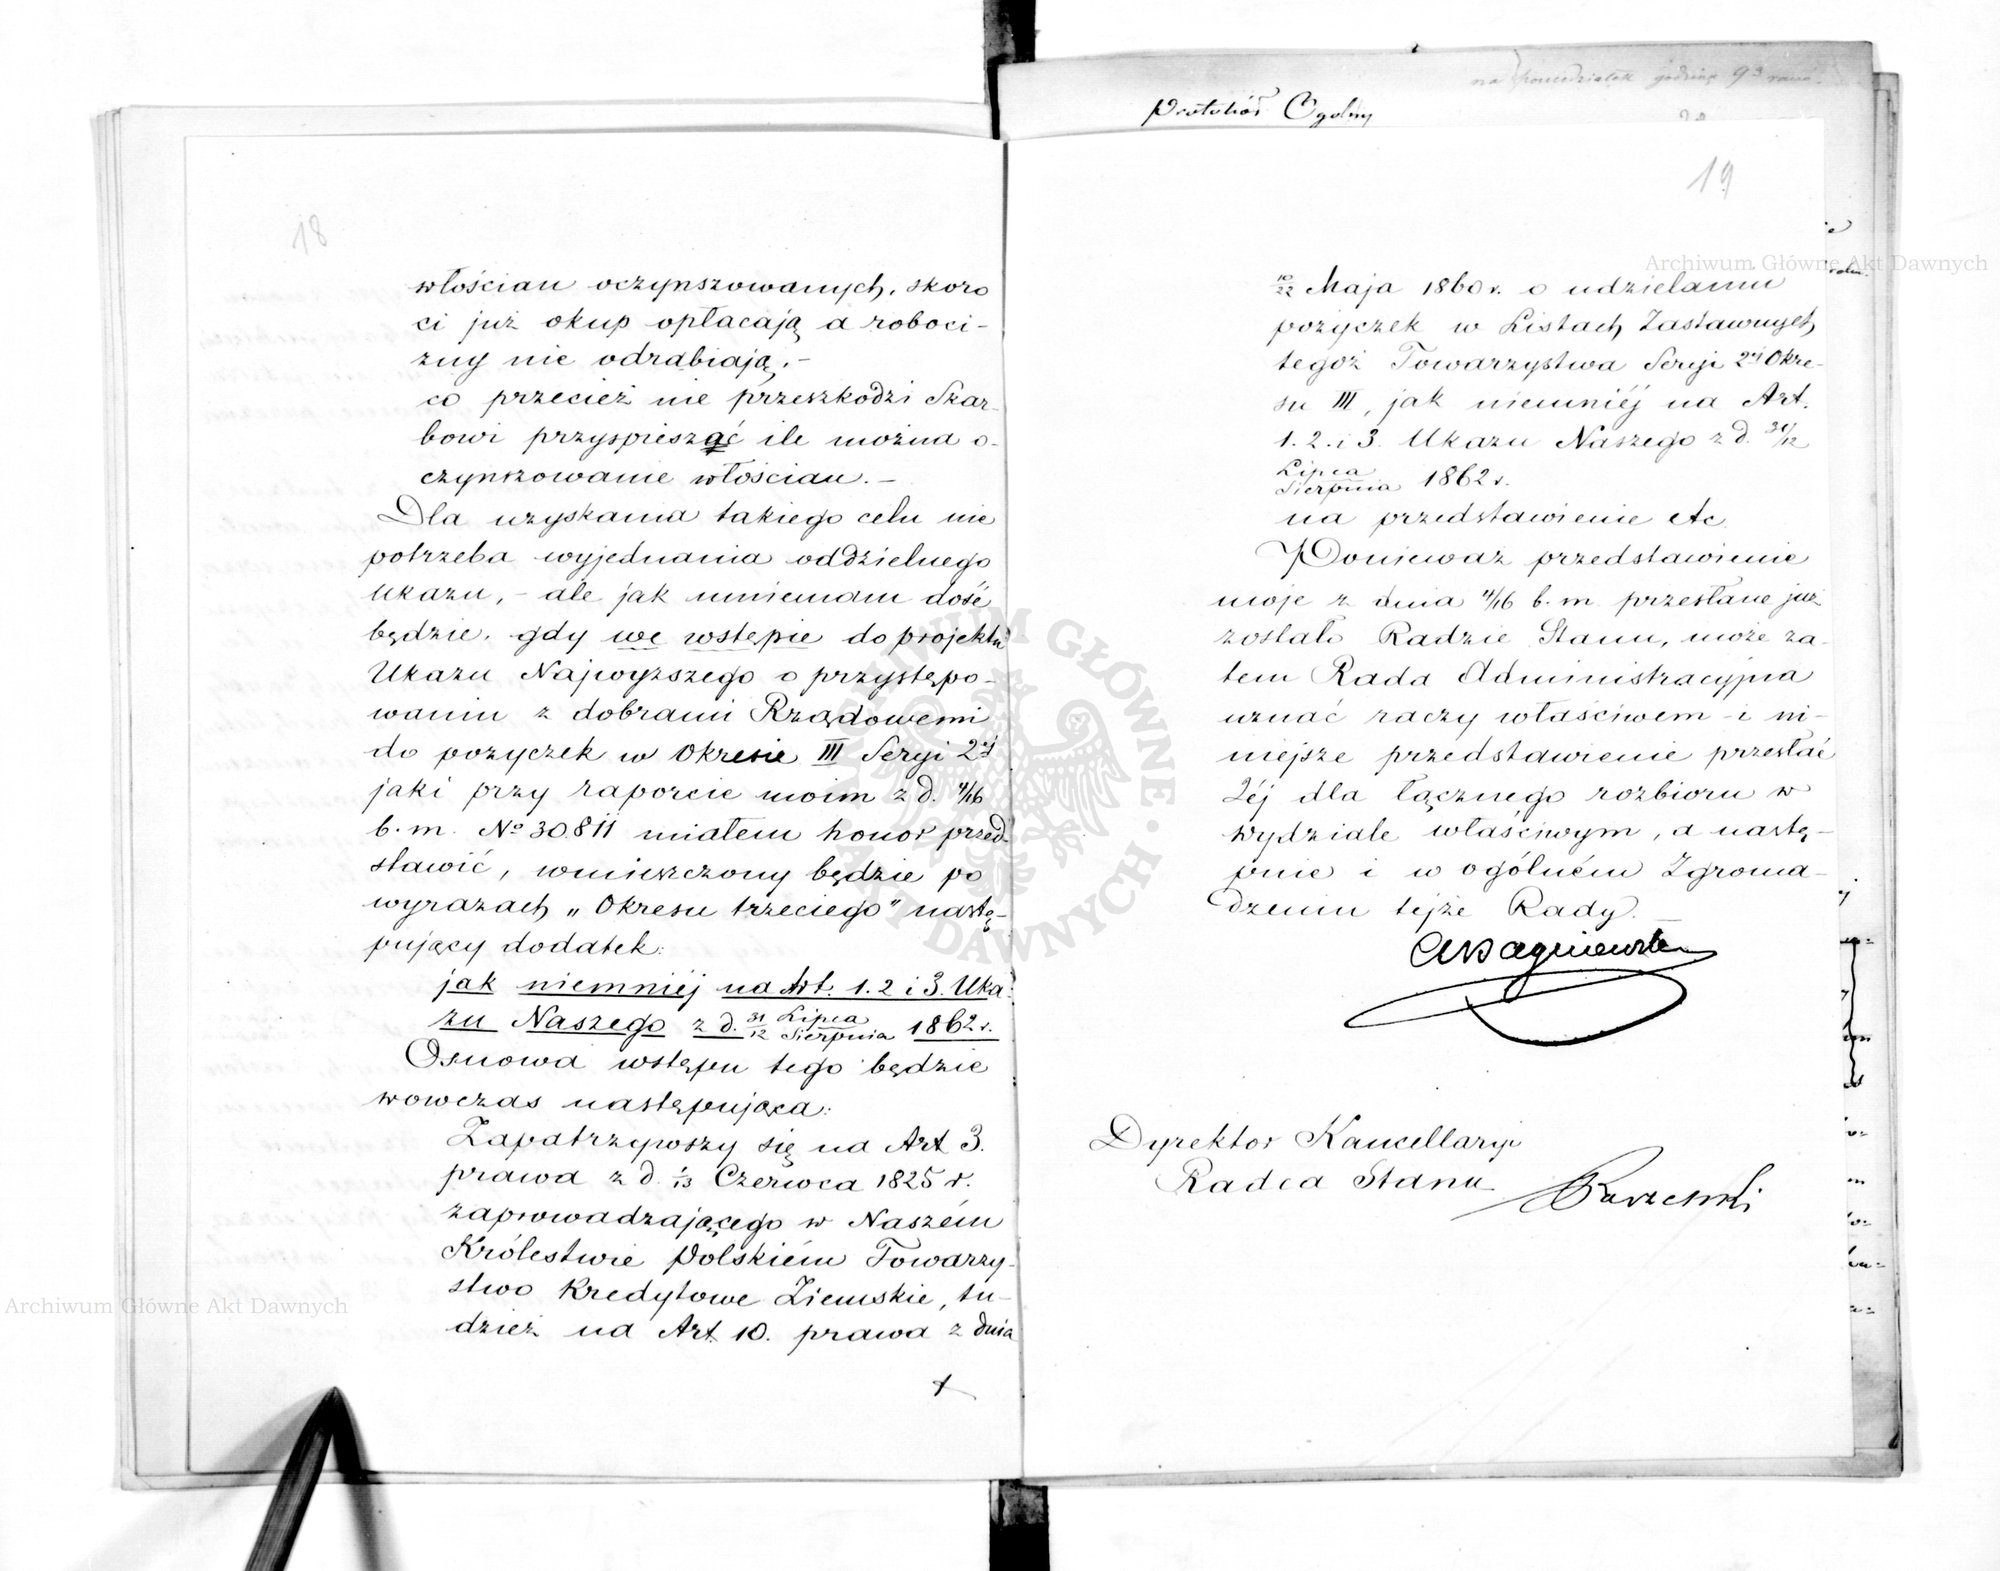 18
włościan oczynszowanych, skoro
ci już okup opłacają a roboci-
zny nie odrabiają.-
co przecież nie przeszkodzi Skar-
bowi przyspieszać ile można o-
czynszowanie włościan.-
Dla uzyskania takiego celu nie
potrzeba wyjednania oddzielnego
Ukazu, - ale jak mniemam dość
będzie, gdy we wstępie do projektu
Ukazu Najwyższego o przystępo-
waniu z dobrami Rządowemi
do pożyczek w Okresie III Seryi 2ej
jaki przy raporcie moim z d. 4/16
b. m. No 30.811 miałem honor przed-
stawić, wmieszczony będzie po
wyrazach „Okresu trzeciego" nastę-
pujący dodatek:
jak niemniéj na Art. 1. 2 i 3. Uka-
zu Naszego z d. 31/12 Lipca/Sierpnia 1862 r.
Osnowa wstępu tego będzie
wowczas następująca:
Zapatrzywszy się na Art 3.
prawa z d. 1/13 Czerwca 1825 r.
zaprowadzającego w Naszém
Królestwie Polskiém Towarzy-
stwo Kredytowe Ziemskie, tu-
dzież na Art. 10. prawa z dnia
na poniedziałek godzinę 9
Protokół Ogolny
19
10/22 Maja 1860 r. o udzielaniu
pożyczek w Listach Zastawnych
tegoż Towarzystwa Seryi 2ej Okre-
su III, jak niemniéj na Art.
1. 2. i 3. Ukazu Naszego z d. 31/12
Lipca/Sierpnia 1862 r.
na przedstawienie etc.
Ponieważ przedstawienie
moje z dnia 4/16 b. m. przesłane już
zostało Radzie Stanu, może za-
tem Rada Administracyjna
uznać raczy właściwem i ni-
niejsze przedstawienie przesłać
Jéj dla łącznego rozbioru w
wydziale właściwym, a nastę-
pnie i w ogólném Zgroma-
dzeniu tejże Rady.
Dyrektor Kancellaryi
Radca Stanu
Archiwum Główne Akt Dawnych
Archiwum Główne Akt Dawnych
ARCHIWUM GŁÓWNE AKT DAWNYCH